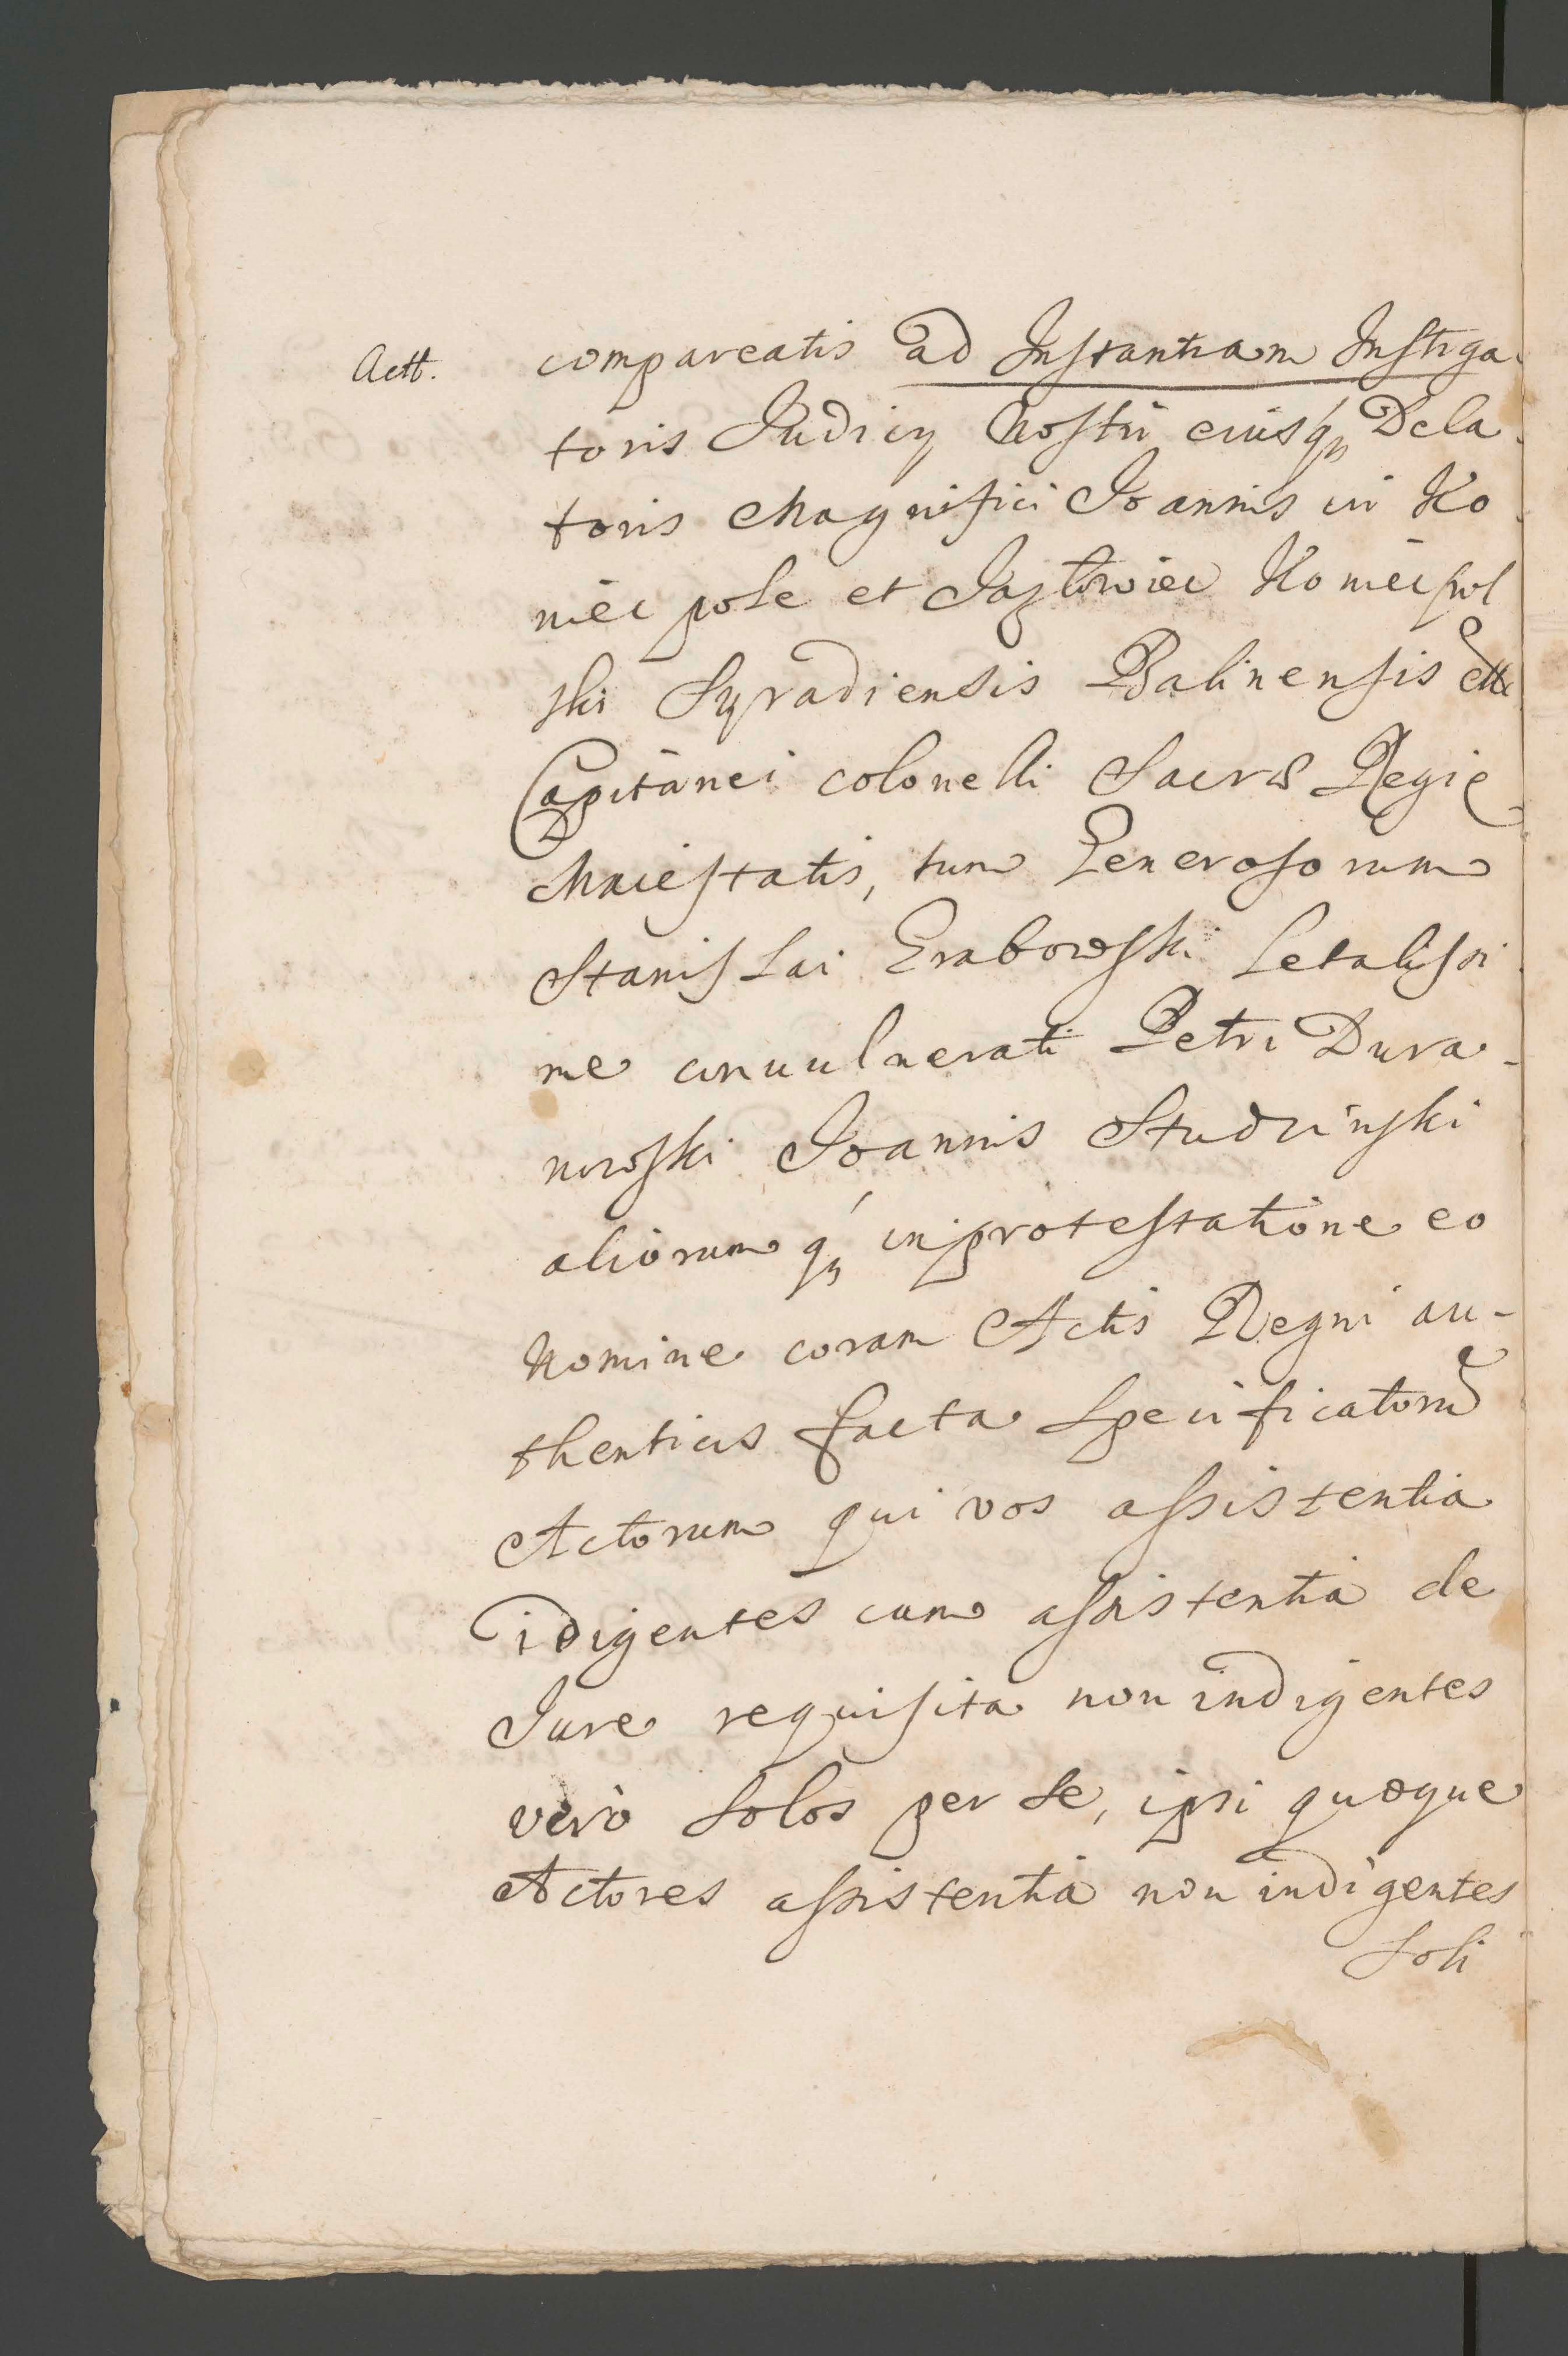 Actt.
compareatis ad Instantiam Instiga-
toris Judicy Nostri eiusq; Dela-
toris Magnifici Joannis in Ko-
niecpole et Jazlowiec Koniecpol
ski Syradiensis Balinensis ettc
Capitanei colonelli Sacrae Regie
Maiestatis, tum Generosorum
Stanislai Grabowski Letalissi-
me convulnerati Petri Dura-
nowski Joannis Studzinski
aliorumq; in protestatione eo
Nomine coram Actis Regni au-
thenticis facta Specificatoru
Actorum qui vos assistentia
idigentes cum assistentia de
Jure requisita non indigentes
vero Solos per se, ipsi quoque
Actores assistentia non indigentes
Soli